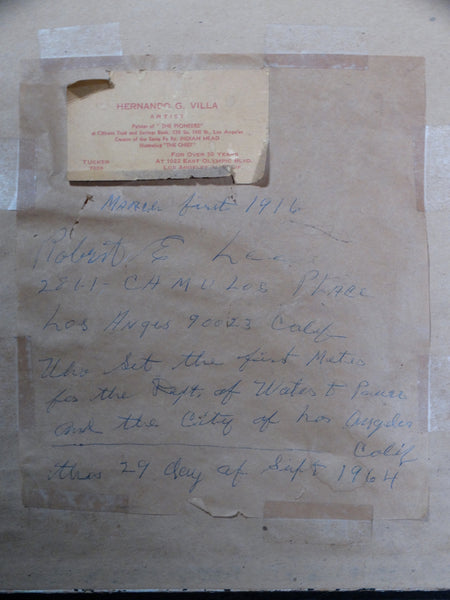 HERNANDO G. VILLA
ARTIST
Painter of "THE PIONEERS"
at Citizens Trust and Savings Bank, So. Hill St., Los Angeles
Creator of the Santa Fe Rd. INDIAN HEAD
Illustrating "THE CHIEF"
TUCKER
FOR OVER 50 YEARS
AT 1622 EAST OLYMPIC BLVD.
LOS ANGELES
March first 1916
Robert E
2861- CAMULOS PLACE
Los Angls 90023 Calif
Who Set the first Meter
for the Dept. of Water & Power
and the City of Los Angeles
Calif
this 29 day of Sept 1964